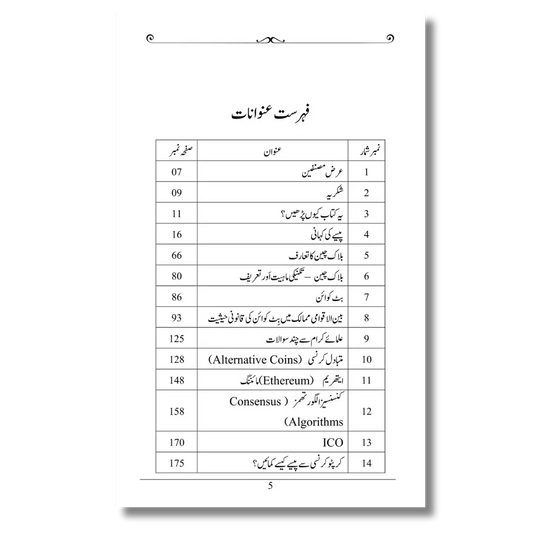 فہرست عنوانات
نمبر شمار عنوان صفحہ نمبر
1 عرض مصنفین 07
2 شکریہ 09
3 یہ کتاب کیوں پڑھیں؟ 11
4 پیسے کی کہانی 16
5 بلاک چین کا تعارف 66
6 بلاک چین – تکنیکی ماہیت اور تعریف 80
7 بٹ کوائن 86
8 بین الاقوامی ممالک میں بٹ کوائن کی قانونی حیثیت 93
9 علمائے کرام سے چند سوالات 125
10 متبادل کرنسی (Alternative Coins) 128
11 ایتھریم (Ethereum) مائننگ 148
12 کنسنسیز الگورتھمز (Consensus
Algorithms) 158
13 ICO 170
14 کرپٹو کرنسی سے پیسے کیسے کمائیں؟ 175
5